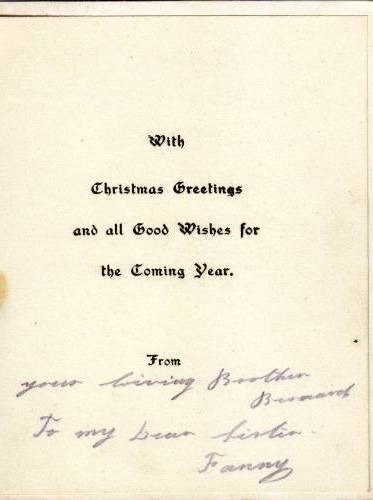 With
Christmas Greetings
and all Good Wishes for
the Coming Year.
From
your loving Brother
Bernard
To my Dear Sister.
Fanny